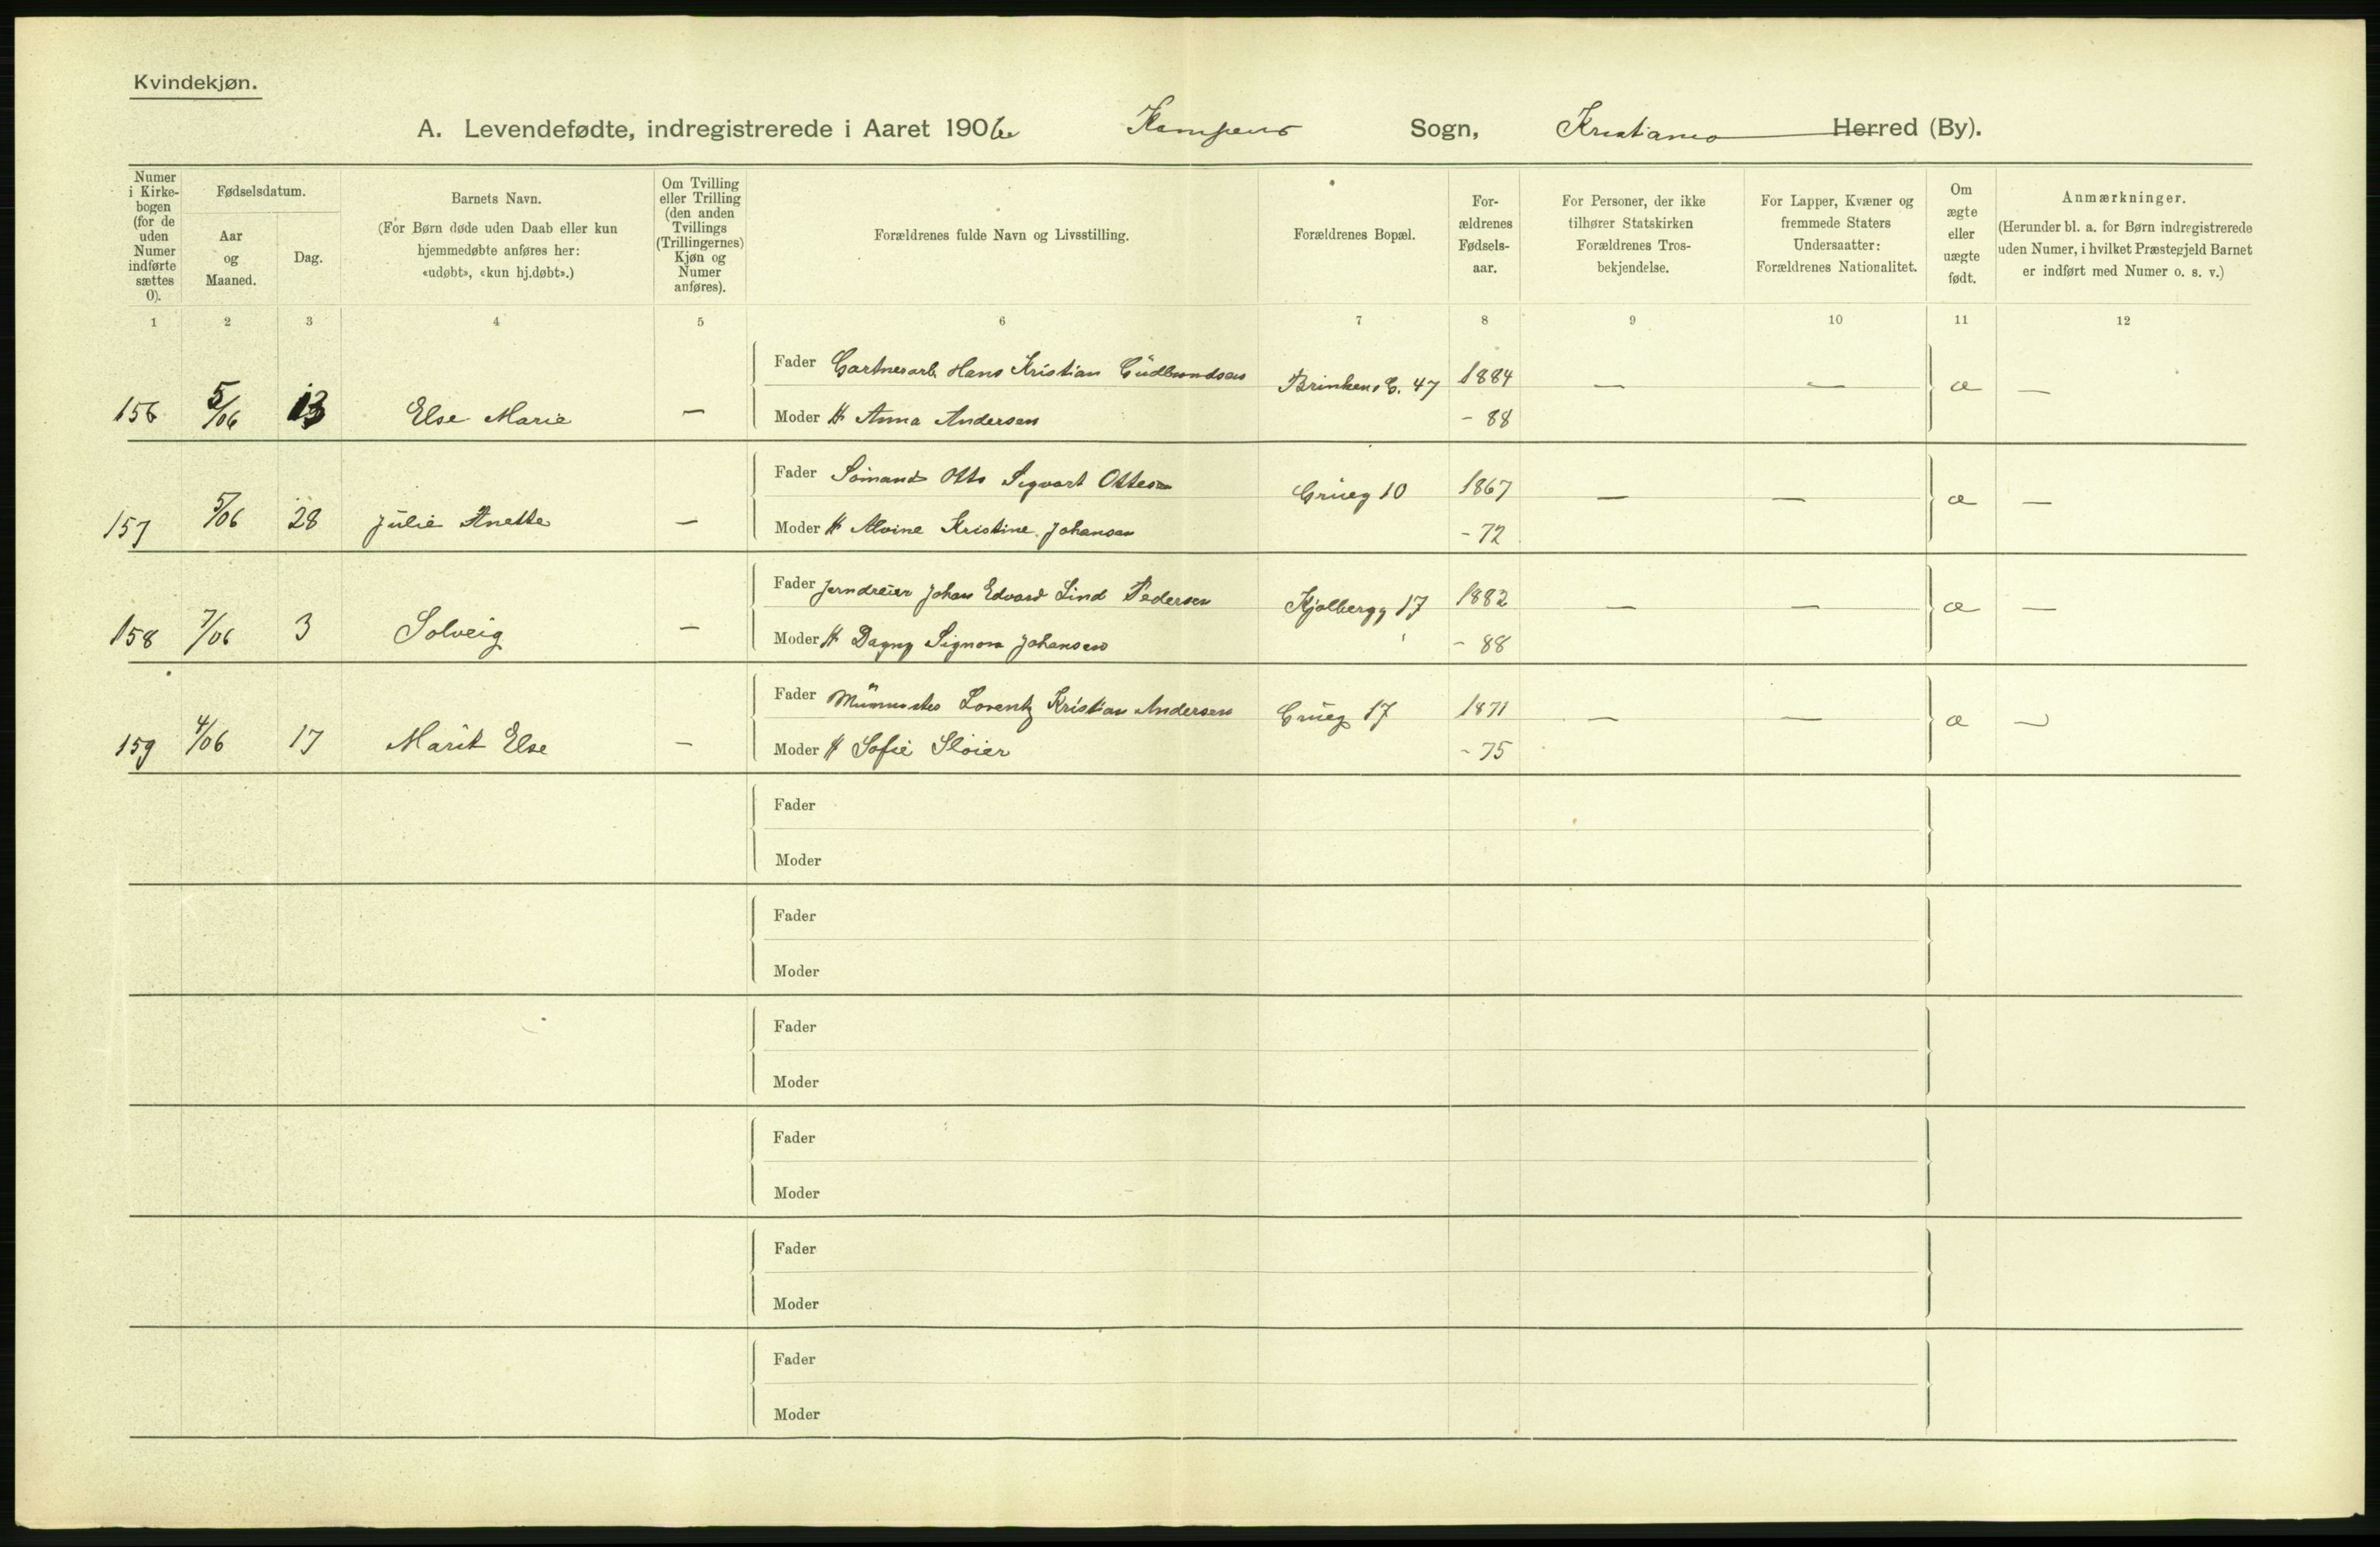 Kvindekjøn.
A. Levendefødte, indregistrerede i Aaret 1906 Kampens Sogn, Kristiania Herred (By).
Numer i Kirkebogen (for de uden Numer indførte sættes 0).
Fødselsdatum.
Aar og Maaned.
Dag.
Barnets Navn.
(For Børn døde uden Daab eller kun hjemmedøbte anføres her: «udøbt», «kun hj.døbt».)
Om Tvilling eller Trilling (den anden Tvillings (Trillingernes) Kjøn og Numer anføres).
Forældrenes fulde Navn og Livsstilling.
Forældrenes Bopæl.
Forældrenes Fødselsaar.
For Personer, der ikke tilhører Statskirken Forældrenes Trosbekjendelse.
For Lapper, Kvæner og fremmede Staters Undersaatter: Forældrenes Nationalitet.
Om ægte eller uægte født.
Anmærkninger.
(Herunder bl. a. for Børn indregistrerede uden Numer, i hvilket Præstegjeld Barnet er indført med Numer o. s. v.)
1 2 3 4 5 6 7 8 9 10 11 12
Fader Gartnerarb. Hans Kristian Gudbrandsen Brinken G. 47 1884 — — æ —
156 5/06 13 Else Marie — Moder H Anna Andersen - 88
Fader Sömand Otto Sigvart Ottesen Grüeg 10 1867 — — æ —
157 5/06 28 Julie Anette — Moder H Alvine Kristine Johansen - 72
Fader Jerndreier Johan Edvard Lind Pedersen Kjølbergg 17 1882 — — æ —
158 7/06 3 Solveig — Moder H Dagny Signora Johansen - 88
Fader Lorentz Kristian Andersen Grüeg 17 1871 — — æ —
159 4/06 17 Marit Else — Moder H Sofie Sloier - 75
Fader
Moder
Fader
Moder
Fader
Moder
Fader
Moder
Fader
Moder
Fader
Moder